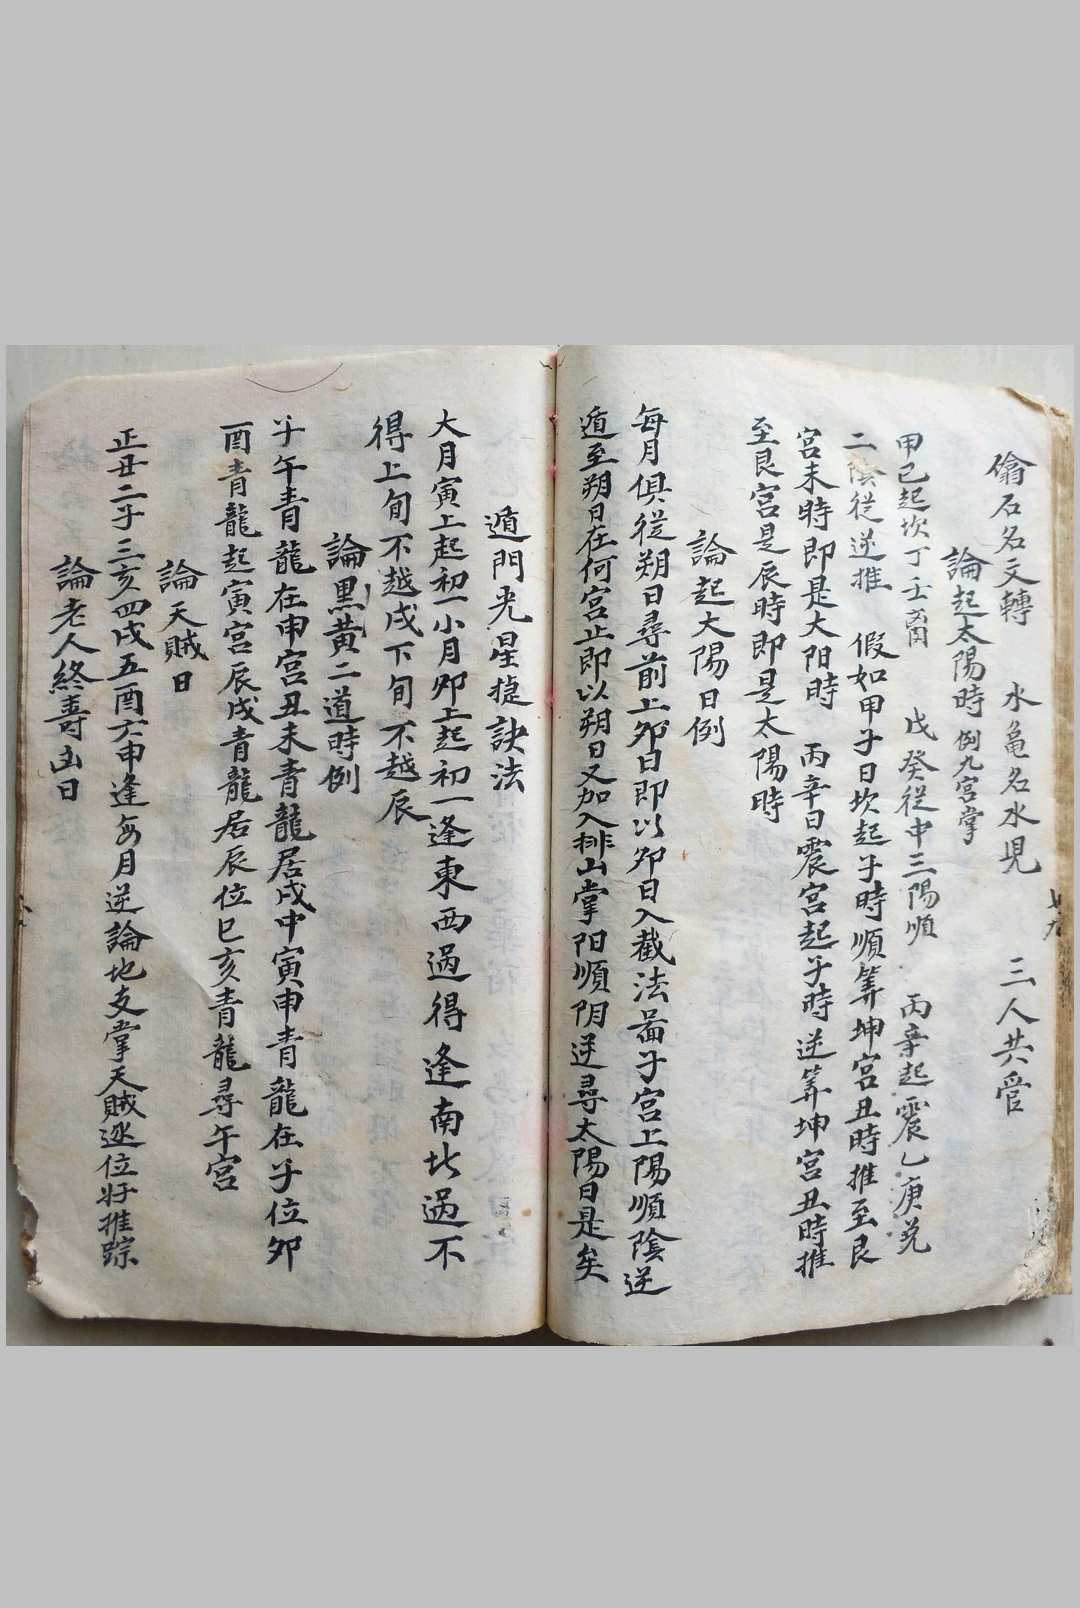 偸石名文轉 水亀名水鬼 三人共管
論起太陽時例九宮掌
甲己起坎丁壬离 戊癸從中三陽順 丙辛起震乙庚兌
二陰從逆推 假如甲子日坎起子時順筭坤宮丑時推至艮
宮未時即是大阳時 丙辛日震宮起子時逆筭坤宮丑時推
至艮宮是辰時即是太陽時
論起太陽日例
每月俱從朔日尋前上卯日即以卯日入截法啚子宮上陽順陰逆
遁至朔日在何宮止即以朔日又加入排山掌阳順阴逆尋太陽日是矣
遁門光星捷訣法
大月寅上起初一小月卯上起初一逢東西過得逢南北過不
得上旬不越戌下旬不越辰
論黒黄二道時例
子午青龍在申宮丑未青龍居戌中寅申青龍在子位卯
酉青龍起寅宮辰戌青龍居辰位巳亥青龍尋午宮
論天賊日
正丑二子三亥四戌五酉六申逢每月逆論地支掌天賊逐位好推踪
論老人終壽凶日